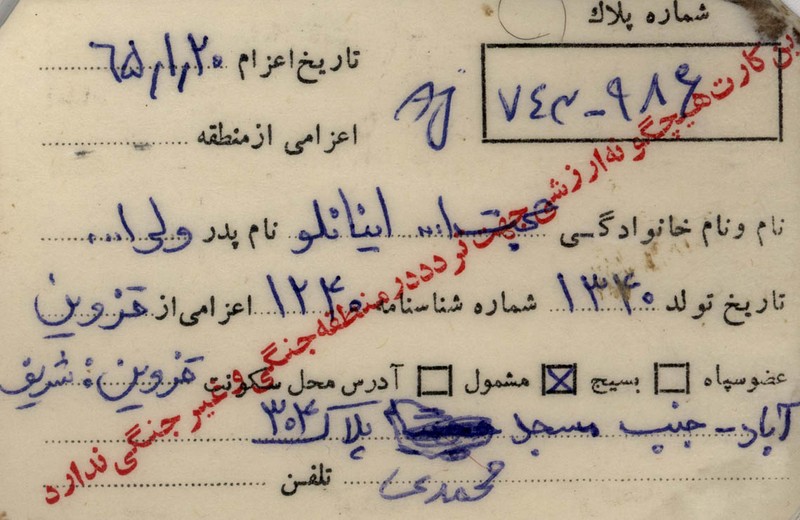 شماره پلاك
تاریخ اعزام ۶۵/۱/۲۰
۷٤۳-۹۸۶
AJ
اعزامی از منطقه
نام و نام خانوادگی اینانلو نام پدر ولی ا...
تاریخ تولد ۱۳۴۰ شماره شناسنامه ۱۲۴۰ اعزامی از قزوین
عضو سپاه بسیج مشمول آدرس محل سکونت قزوین: شریف
آباد - جنب مسجد پلاک ۳۰۴
محمدی
تلفن
این کارت هیچگونه ارزشی جهت تردد در منطقه جنگی و غیر جنگی ندارد